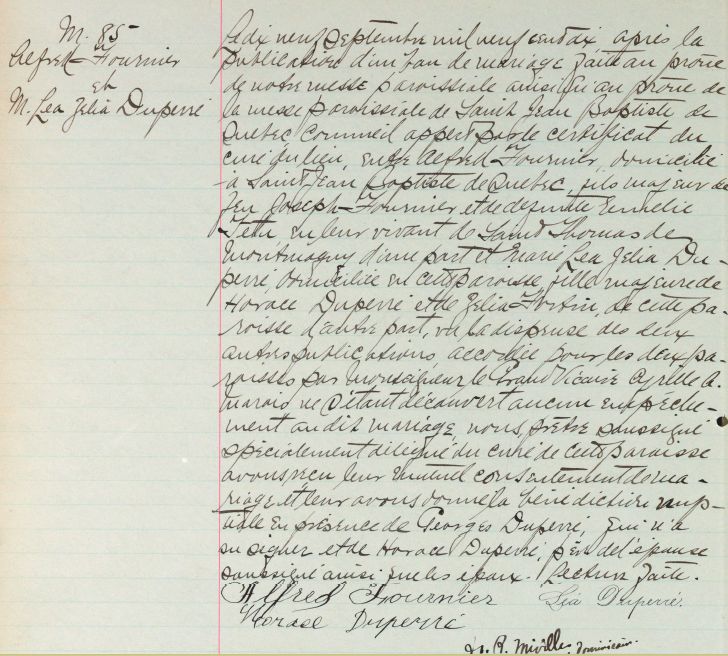 M. 85
Alfred Fournier
et
M. Lea Zelia Duperré
Le dix neuf Septembre mil neuf cent dix après la
publication d'un ban de mariage faite au prône
de notre messe paroissiale ainsi qu'au prône de
la messe paroissiale de Saint Jean Baptiste de
Quebec comme il appert par le certificat du
curé du lieu, entre Alfred Fournier, domicilié
à Saint Jean Baptiste de Quebec, fils majeur de
feu Joseph Fournier et de defunte Emelie
en leur vivant de Saint Thomas de
Montmagny d'une part et Marie Lea Zelia Du-
perré domiciliée en cette paroisse, fille majeure de
Horace Duperré et de Zelia Fortin, de cette pa-
roisse d'autre part, vu la dispense des deux
autres publications accordée pour les deux pa-
roisses par Monseigneur le Grand Vicaire Cyrille A.
Marois ne s'étant découvert aucun empêche-
ment au dit mariage nous, prêtre soussigné
spécialement délégué du curé de cette paroisse
avons reçu leur mutuel consentement de ma-
riage et leur avons donné la bénédiction nup-
tiale en présence de Georges Duperré, qui n'a
su signer et de Horace Duperré, père de l'épouse
soussigné ainsi que les époux. Lecture faite.
Alfred Fournier Léa Duperré.
Horace Duperré
R. Miville, Dominicain.